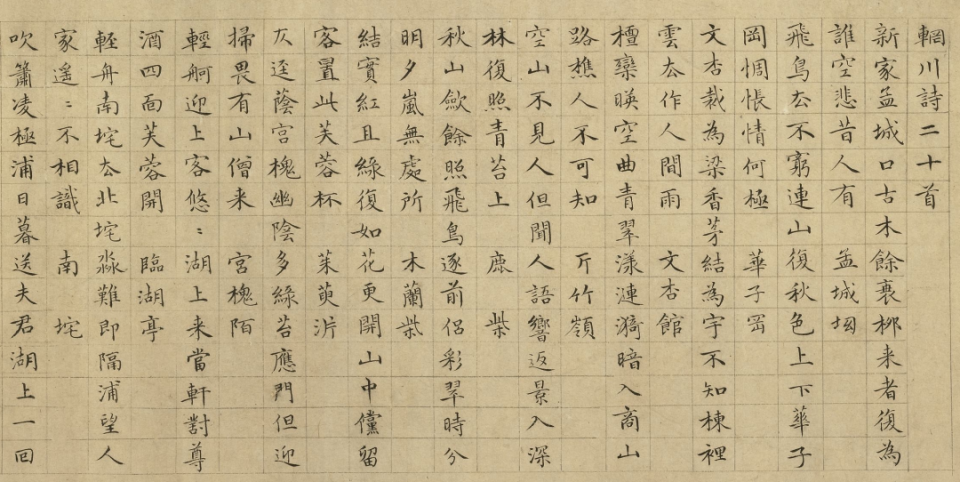 輞川詩二十首
新家孟城口古木餘衰柳来者復為
誰空悲昔人有 孟城坳
飛鳥厺不窮連山復秋色上下華子
岡惆悵情何極 華子岡
文杏裁為梁香茅結為宇不知棟裡
雲厺作人間雨 文杏館
檀欒暎空曲青翠漾漣漪暗入商山
路樵人不可知 斤竹嶺
空山不見人但聞人語響返景入深
林復照青苔上 鹿柴
秋山斂餘照飛鳥逐前侶彩翠時分
明夕嵐無處所 木蘭柴
結實紅且綠復如花更開山中儻留
客置此芙蓉杯 茱萸沜
仄逕蔭宮槐幽陰多綠苔應門但迎
掃畏有山僧来 宮槐陌
輕舸迎上客悠〻湖上来當軒對尊
酒四面芙蓉開 臨湖亭
輕舟南垞厺北垞淼難即隔浦望人
家遥〻不相識 南垞
吹簫凌極浦日暮送夫君湖上一回